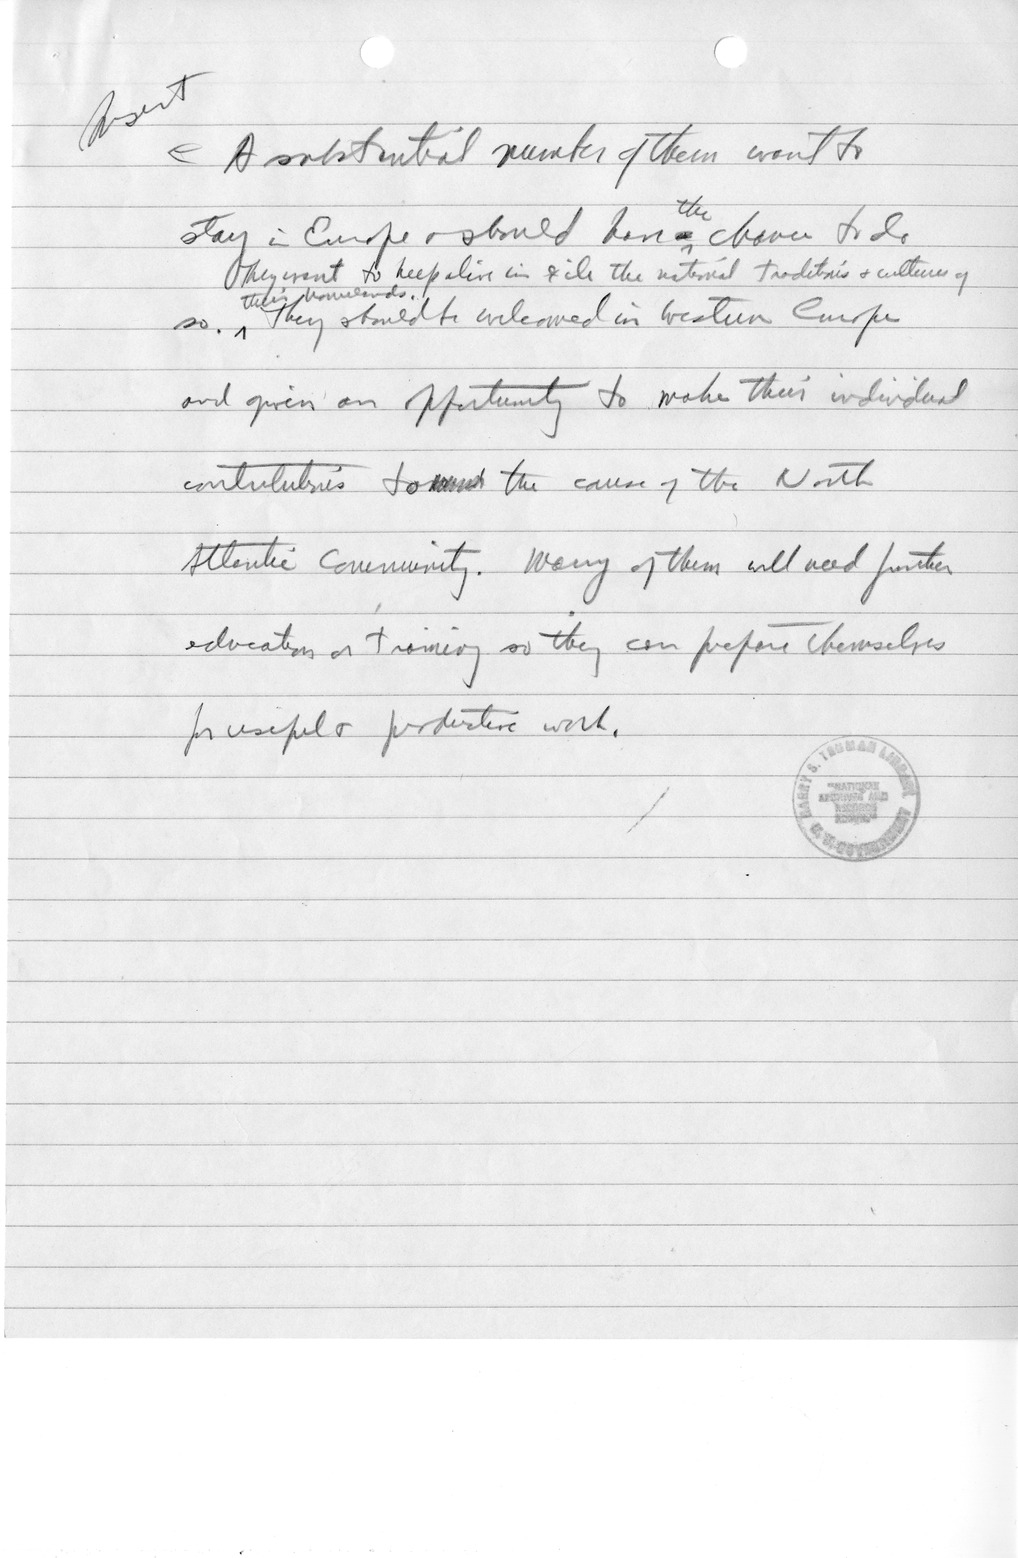 Insert
A substantial number of them want to
stay in Europe & should have the chance to do
They want to keep alive in exile the national traditions & cultures of
their homelands.
so. They should be welcomed in Western Europe
and given an opportunity to make their individual
contributions to the cause of the North
Atlantic Community. Many of them will need further
education or training so they can prepare themselves
for useful & productive work.
HARRY S. TRUMAN LIBRARY
"NATIONAL
ARCHIVES AND
RECORDS
SERVICE"
U.S. GOVERNMENT